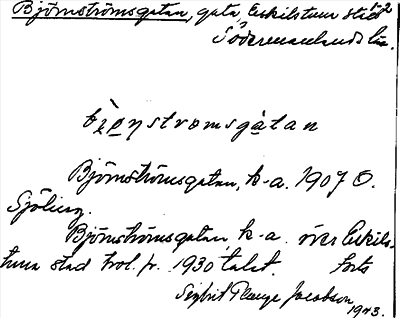 Björnströmsgatan, gata, Eskilstuna stad 1-2
Södermanlands län.
bjö̀ŋstrømsgàtan
Björnströmsgatan, k-a. 1907 O.
Sjöling.
Björnströmsgatan, k-a. över Eskils-
tuna stad trol. fr. 1930 talet. forts
Sigbrit Plænge Jacobson
1943.